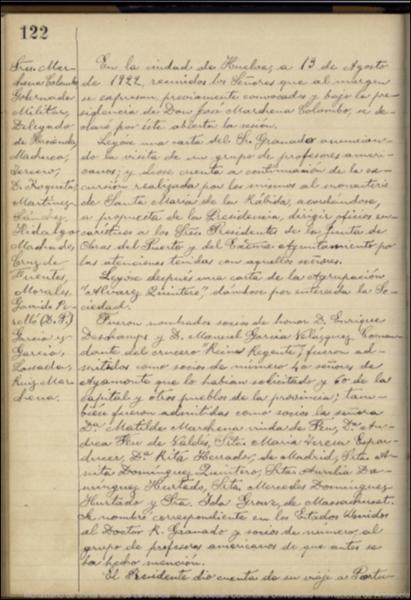 122
Sres. Mar-
chena Colombo
Gobernador
Militar,
Delegado
de Hacienda,
Machuca,
Terrero,
D. Roqueta,
Martínez
Sánchez,
Hidalgo
Machado,
Cruz de
Fuentes,
Morales,
Garrido Pe-
relló (D. F.)
García y
García,
Posadas,
Ruiz Mar-
chena.
En la ciudad de Huelva, a 13 de Agosto
de 1922, reunidos los Señores que al margen
se expresan, previamente convocados y bajo la pre-
sidencia de Don José Marchena Colombo, se de-
claró por éste abierta la sesión.
Leyose una carta del Sr. Granado anuncian-
do la visita de un grupo de profesores ameri-
canos; y diose cuenta a continuación de la ex-
cursión realizada por los mismos al monasterio
de Santa María de la Rábida, acordándose,
a propuesta de la Presidencia, dirigir oficios en-
carísticos a los Sres. Presidentes de la Junta de
Obras del Puerto y del Excmo. Ayuntamiento por
las atenciones tenidas con aquellos señores.
Leyose después una carta de la Agrupación
"Alvarez Quintero", dándose por enterada la So-
ciedad.
Fueron nombrados socios de honor D. Enrique
Deschamps y D. Manuel García Velázquez, Coman-
dante del crucero Reina Regente; fueron ad-
mitidos como socios de número 40 señores de
Ayamonte que lo habían solicitado y 60 de la
capital y otros pueblos de la provincia; tam-
bien fueron admitidas como socios la señora
Dª. Matilde Marchena viuda de Feu, Dª. An-
drea Feu de Valdés, Srta. María Teresa
Dª. Rita Hernado, de Madrid, Srta. A-
nita Domínguez Quintero, Srta. Aurelia Do-
minguez Hurtado, Srta. Mercedes Dominguez
Hurtado y Sra. Iola de Massachuset.
Se nombró correspondiente en los Estados Unidos
al Doctor R. Granado y socios de número, al
grupo de profesores americanos de que antes se
ha hecho mención.
El Presidente dió cuenta de su viaje a Portu-